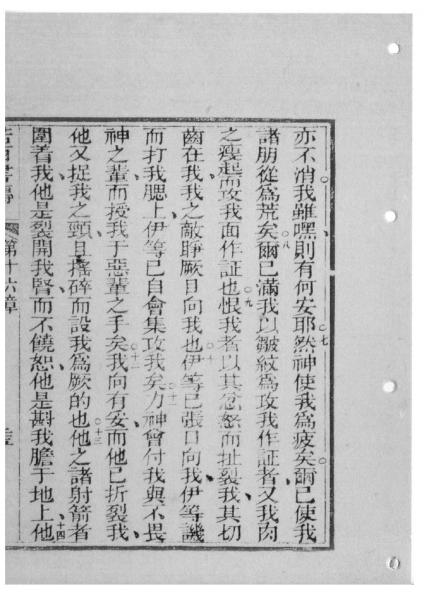 亦不消我雖嘿則有何安耶七然神使我爲疲矣爾已使我
諸朋從爲荒矣八爾已滿我以皺紋爲攻我作証者又我肉
之瘦起而攻我面作証也九恨我者以其忿怒而扯裂我其切
齒在我我之敵睜厥目向我也十伊等已張口向我伊等譏
而打我腮上伊等已自會集攻我矣十一力神會付我與不畏
神之輩而授我于惡輩之手矣十二我向有妥而他已折裂我
他又捉我之頸且搖碎而設我爲厥的也十三他之諸射箭者
圍着我他是裂開我腎而不饒恕他是斟我膽于地上十四他
第十六章